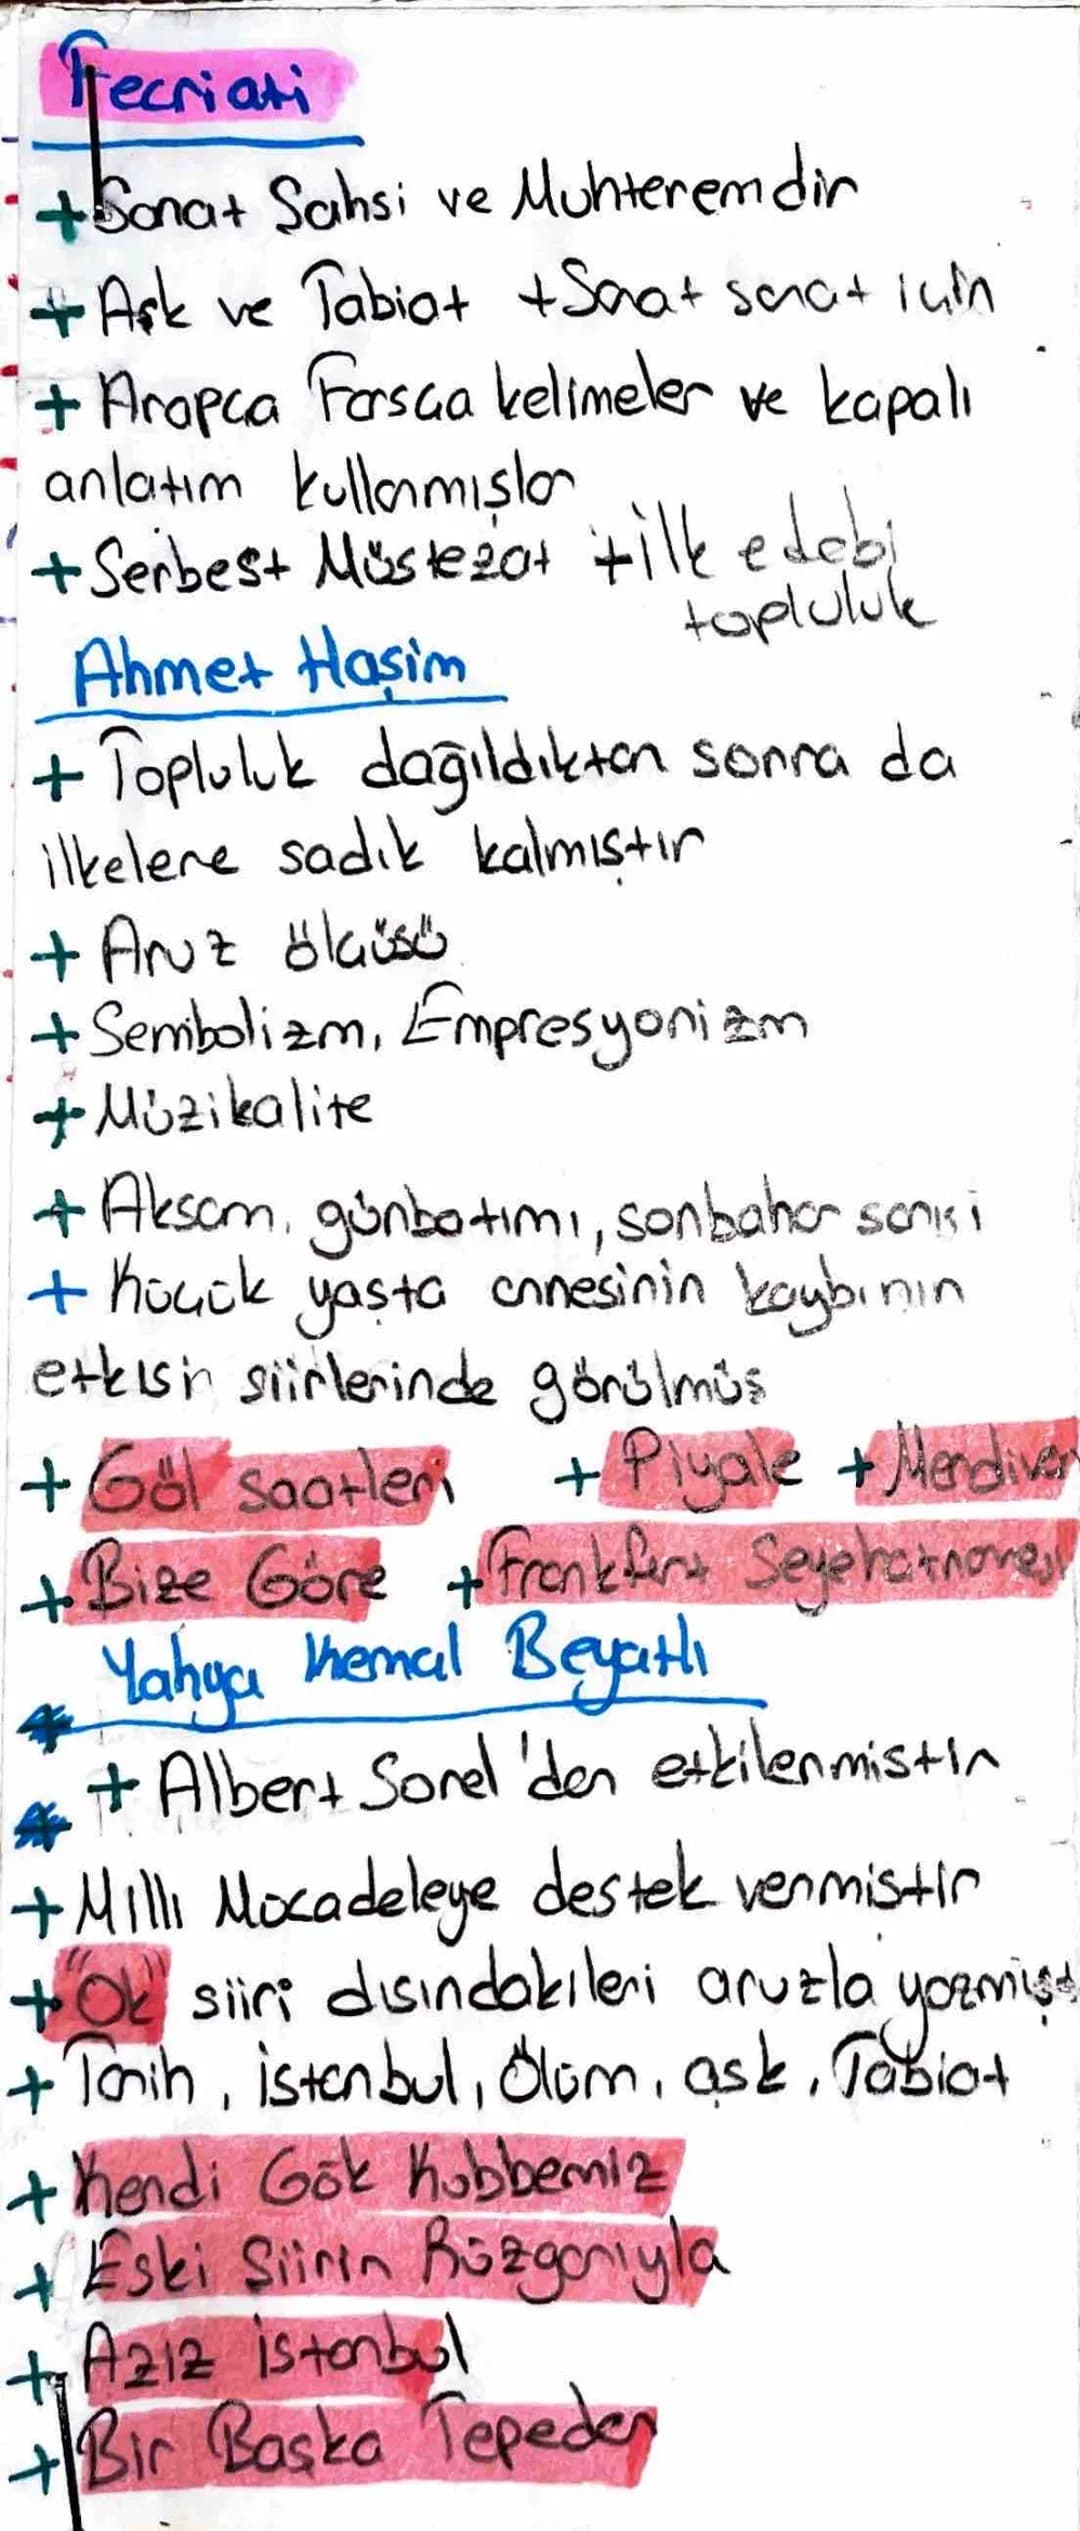 Fecriati
+ Sanat Sahsi ve Muhteremdir
+ Aşk ve Tabiat + Sanat sanat için
+ Arapca Farsca kelimeler ve kapalı
anlatım kullanmışlar
+ Serbest Müstezat + ilk edebi
topluluk
Ahmet Haşim
+ Topluluk dağıldıktan sonra da
ilkelere sadık kalmıştır
+ Aruz ölçüsü
+ Sembolizm, Empresyonizm
+ Müzikalite
+ Aksam, günbatımı, sonbahar sarısi
+ Küçük yaşta annesinin kaybının
etkisin siirlerinde görülmüs
+ Göl saatleri + Piyale + Merdiven
+ Bize Göre + Frankfurt Seyehatnamesi
Yahya Kemal Beyatlı
+ Albert Sorel'den etkilenmistir
+ Millı Mücadeleye destek vermistir
+ "Ok" siiri dısındakileri aruzla yazmışt
+ Tarih, istanbul, Ölüm, ask, Tabiat
+ Kendi Gök Kubbemiz
+ Eski Siirin Rüzgarıyla
+ Aziz istanbul
+ Bir Başka Tepeden